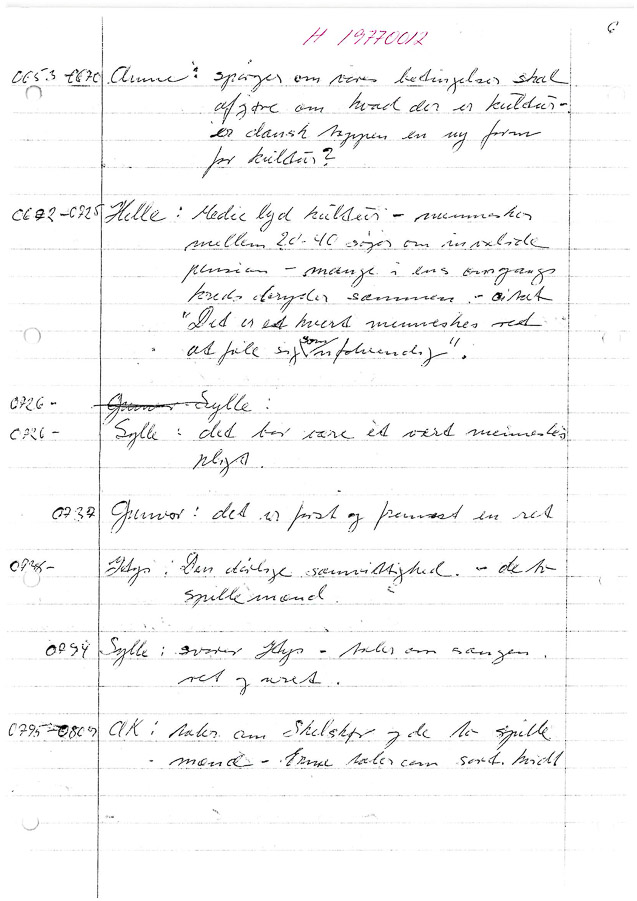 H 19770012
6
0653-0670 Anne: spørger om vores betingelser skal
afgøre om hvad der er kultur-
er dansk toppen en ny form
for kultur?
0672-0725 Helle: Medie lyd kultur - mennesker
mellem 20-40 søger om invalide
pension - mange i ens omgangs
kreds dryder sammen - citat
"Det er et hvert menneskes ret
at føle sig som uundværlig".
0726- Gunvor Sylle:
0726- Sylle: det bør være et vært menneskes
pligt.
0737 Gunvor: det er først og fremmest en ret
Den dårlige samvittighed. - de to
spillemænd.
0794 Sylle: svarer - taler om sangen.
ret og uret.
0795-0809 AK: taler om Skelskør og de to spille
mænd - taler om sort